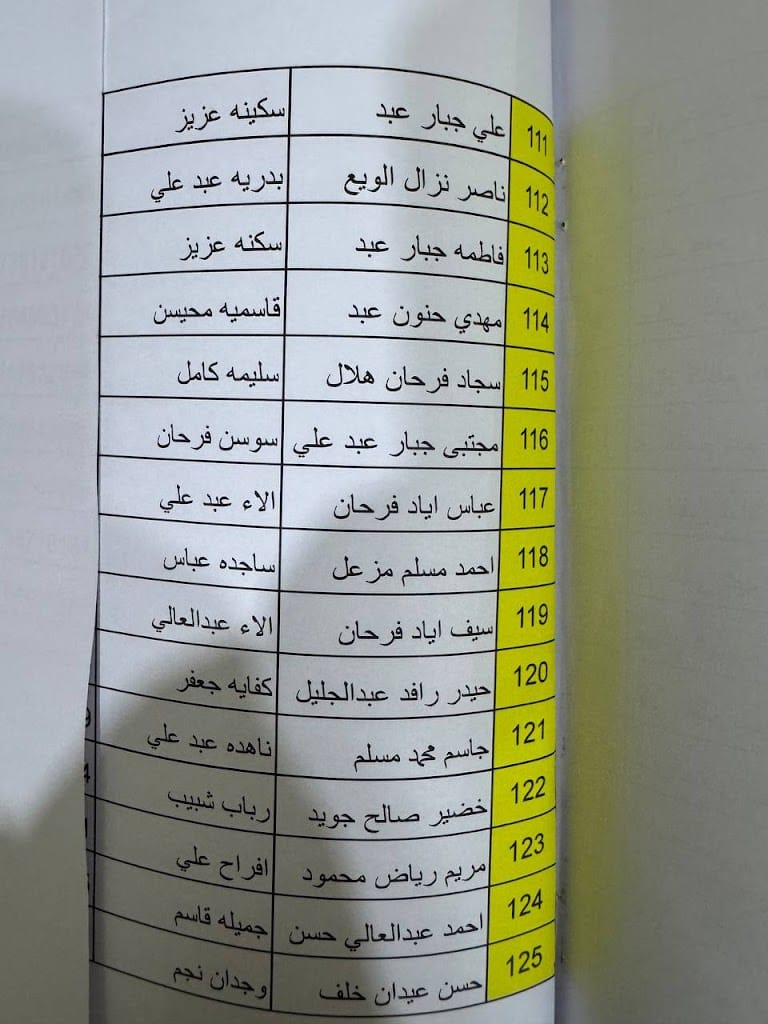 111 علي جبار عبد سكينه عزيز
112 ناصر نزال الويع بدريه عبد علي
113 فاطمه جبار عبد سكنه عزيز
114 مهدي حنون عبد قاسميه محيسن
115 سجاد فرحان هلال سليمه كامل
116 مجتبى جبار عبد علي سوسن فرحان
117 عباس اياد فرحان الاء عبد علي
118 احمد مسلم مزعل ساجده عباس
119 سيف اياد فرحان الاء عبدالعالي
120 حيدر رافد عبدالجليل كفايه جعفر
121 جاسم محمد مسلم ناهده عبد علي
122 خضير صالح جويد رباب شبيب
123 مريم رياض محمود افراح علي
124 احمد عبدالعالي حسن جميله قاسم
125 حسن عيدان خلف وجدان نجم